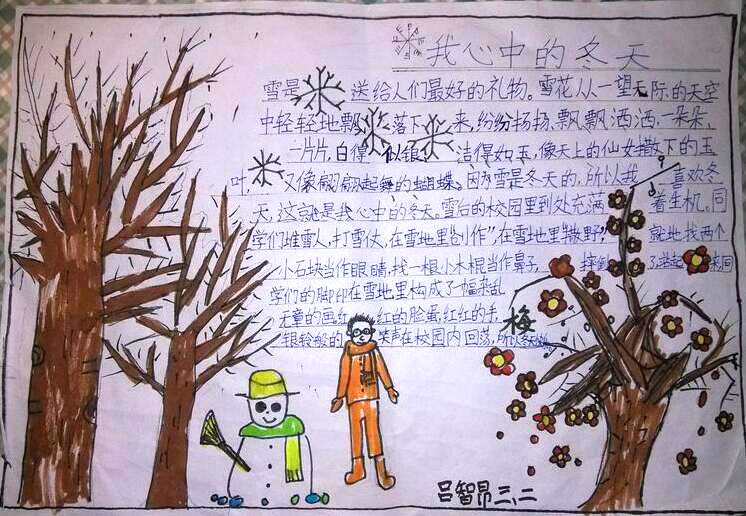 我心中的冬天
雪是 送给人们最好的礼物。雪花从一望无际的天空
中轻轻地飘 落下 来,纷纷扬扬、飘飘洒洒,一朵朵、
一片片,白得 似银, 洁得如玉,像天上的仙女撒下的玉
叶, 又像翩翩起舞的蝴蝶。因为雪是冬天的,所以我 喜欢冬
天,这就是我心中的冬天。雪白的校园里到处充满 着生机。同
学们堆雪人,打雪仗,在雪地里"创作",在雪地里"撒野", 就地找两个
小石块当作眼睛,找一根小木棍当作鼻子, 摔倒 了站起 来,同
学们的脚印在雪地里构成了一幅杂乱
无章的画,红 红的脸蛋,红红的手,
银铃般的 笑声在校园内回荡,所以
梅
吕智昂三、二